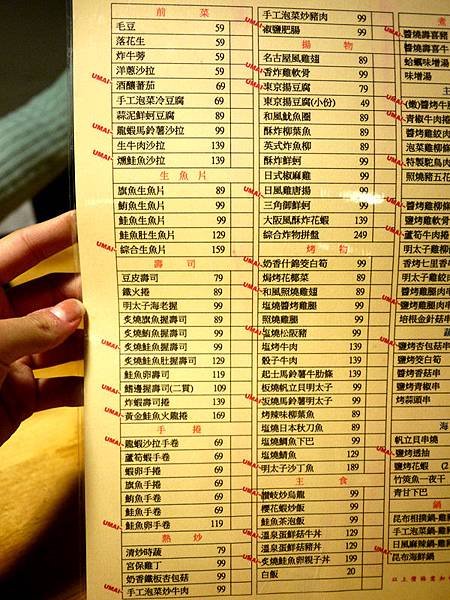 前菜
毛豆 59
落花生 59
炸牛蒡 59
洋蔥沙拉 59
UMAI~ 酒釀蕃茄 69
手工泡菜冷豆腐 69
蒜泥鮮蚵豆腐 89
UMAI~ 龍蝦馬鈴薯沙拉 99
生牛肉沙拉 139
燻鮭魚沙拉 139
生魚片
旗魚生魚片 89
鮪魚生魚片 99
鮭魚生魚片 99
鮭魚肚生魚片 129
UMAI~ 綜合生魚片 159
壽司
豆皮壽司 79
鐵火捲 89
明太子海老握 99
炙燒旗魚握壽司 89
炙燒鮪魚握壽司 99
炙燒鮭魚握壽司 99
UMAI~ 炙燒鮭魚肚握壽司 129
鮭魚卵壽司 119
UMAI~ 鰭邊握壽司(二貫) 109
炸蝦壽司捲 139
UMAI~ 黃金鮭魚火龍捲 169
手捲
UMAI~ 龍蝦沙拉手卷 69
蘆筍蝦手卷 69
蝦卵手卷 69
旗魚手卷 69
鮪魚手卷 69
鮭魚手卷 69
UMAI~ 鮭魚卵手卷 119
熱炒
清炒時蔬 79
宮保雞丁 99
奶香鐵板杏包菇 99
UMAI~ 手工泡菜炒牛肉 99
手工泡菜炒豬肉 99
UMAI~ 椒鹽肥腸 99
揚物
名古屋風雞翅 89
香炸雞軟骨 99
UMAI~ 東京揚豆腐 79
東京揚豆腐(小份) 49
和風魷魚圈 89
酥炸柳葉魚 89
英式炸魚柳 89
酥炸鮮蚵 99
日式椒麻雞 99
UMAI~ 日風雞唐揚 99
三角御鮮蚵 99
大阪風酥炸花蝦 139
綜合炸物拼盤 249
烤物
UMAI~ 奶香什錦筊白筍 99
焗烤花椰菜 89
UMAI~ 和風照燒雞翅 89
塩燒醬烤雞腿 99
照燒雞腿 99
UMAI~ 塩燒松阪豬 99
塩烤牛肉 139
骰子牛肉 139
起士馬鈴薯牛肋條 139
板燒帆立貝明太子 99
UMAI~ 板燒馬鈴薯明太子 99
烤辣味柳葉魚 89
塩燒日本秋刀魚 89
塩燒鯛魚下巴 99
塩燒鯖魚 129
UMAI~ 明太子沙丁魚 189
主食
UMAI~ 讚岐炒烏龍 99
櫻花蝦炒飯 99
鮭魚茶泡飯 99
UMAI~ 溫泉蛋鮮菇牛丼 129
溫泉蛋鮮菇豬丼 129
UMAI~ 炙燒鮭魚卵親子丼 199
白飯 20
煮
醬燒壽喜豬
醬燒壽喜牛
蛤蠣味增湯
味增湯
主
UMAI~ (嫩)醬烤牛
UMAI~ 青椒牛肉捲
醬烤雞絞肉
泡菜雞柳條
UMAI~ 特製鴕鳥肉
照燒豬五花
UMAI~ 醬烤雞柳條
鹽燒雞軟骨
UMAI~ 蘆筍牛肉捲
明太子雞柳
香烤七里香
明太子雞絞
UMAI~ 醬烤雞腿肉串
UMAI~ 鹽烤雞肉串
培根金針菇串
蔬
UMAI~ 鹽烤杏包菇串
鹽烤筊白筍
醬烤香菇串
鹽烤青椒串
烤蒜頭串
海
帆立貝串燒
UMAI~ 鹽烤透抽
鹽烤花蝦 (2
竹筴魚一夜
青甘下巴
鍋
昆布相撲鍋-雞
手工泡菜鍋-雞
UMAI~ 日風麻辣鍋-雞
昆布海鮮鍋
以上價格需加